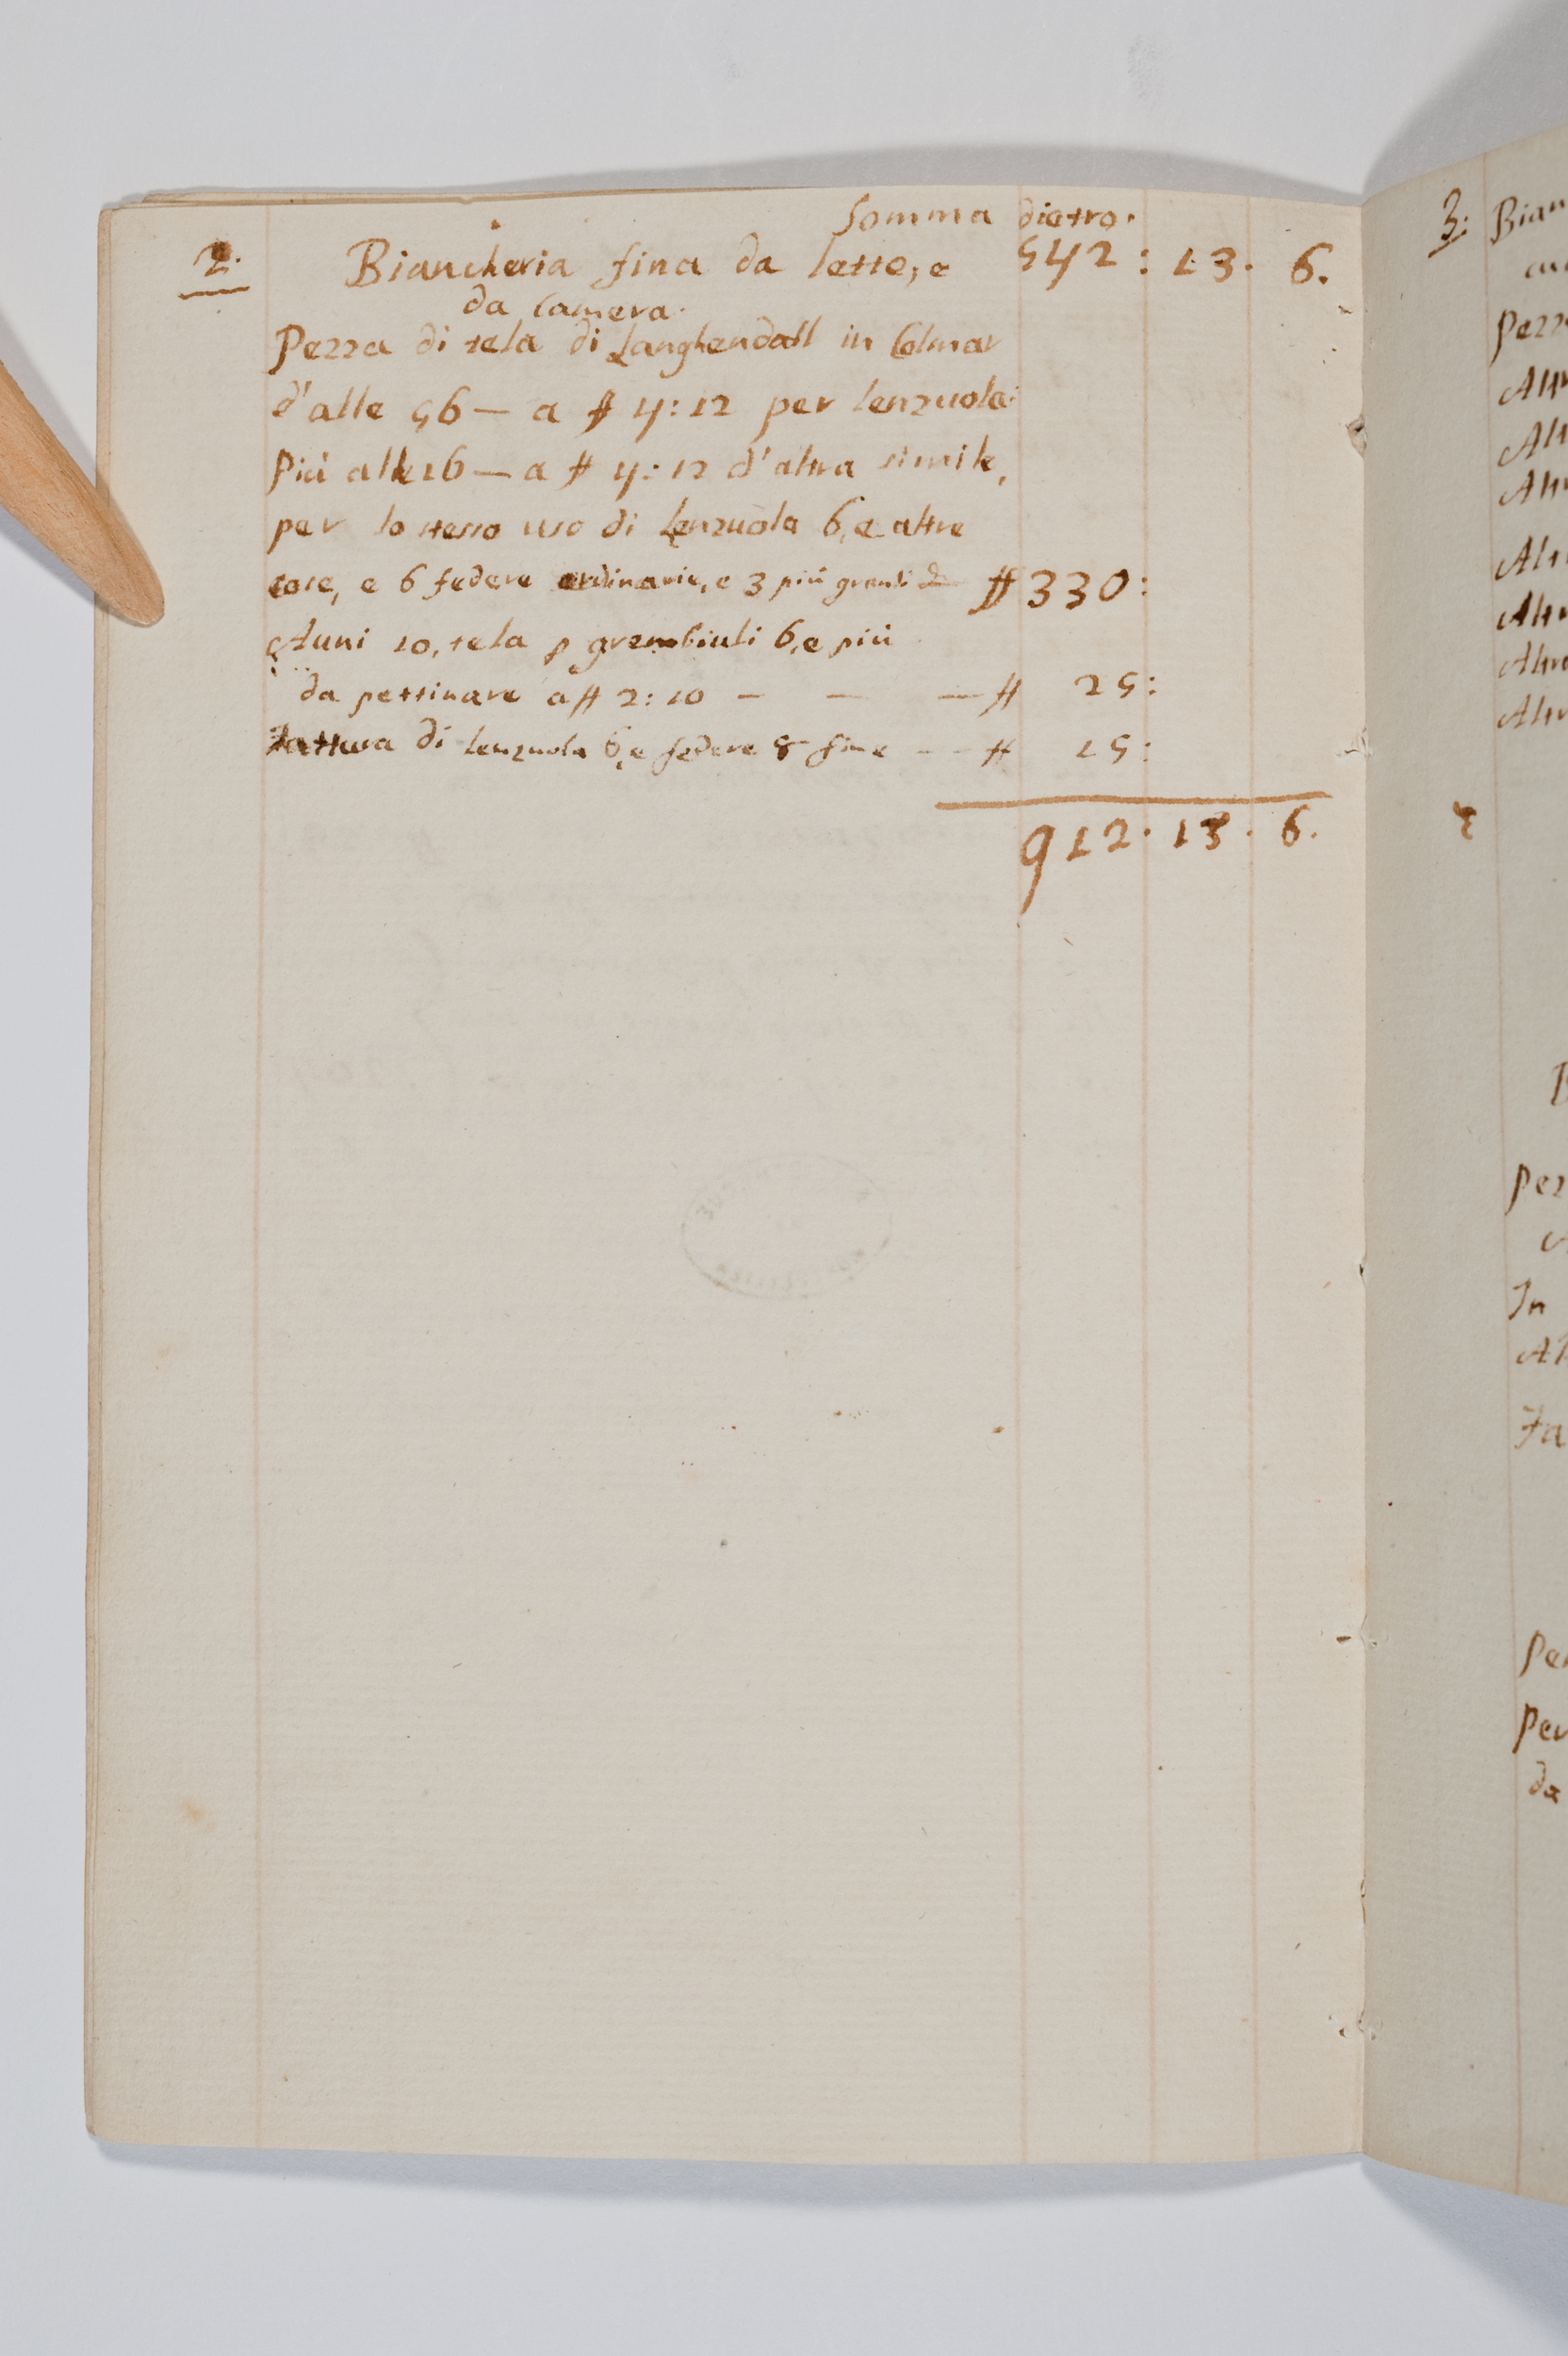 Somma dietro.
2. Biancheria fina da letto, e 542: 13. 6.
da Camera.
Pezza di tela di Langhendall in Colmar
d'alle 56 — a # 4:12 per lenzuola.
Più alle 16 — a # 4:12 d'altra simile,
per lo stesso uso di Lenzuola 6, e altre
cose, e 6 federe ordinarie, e 3 più grandi # 330:
Auni 10, tela p grembiuli 6, e più
da pettinare a # 2:10 — — — # 25:
Fattura di lenzuola 6, e federe 8 fine — — # 15:
912. 13. 6.
3. Bian
Pezz
Alt
Alt
Alt
Alt
Altr
Altro
Altr
Pez
In
Al
Fa
Pe
Per
da